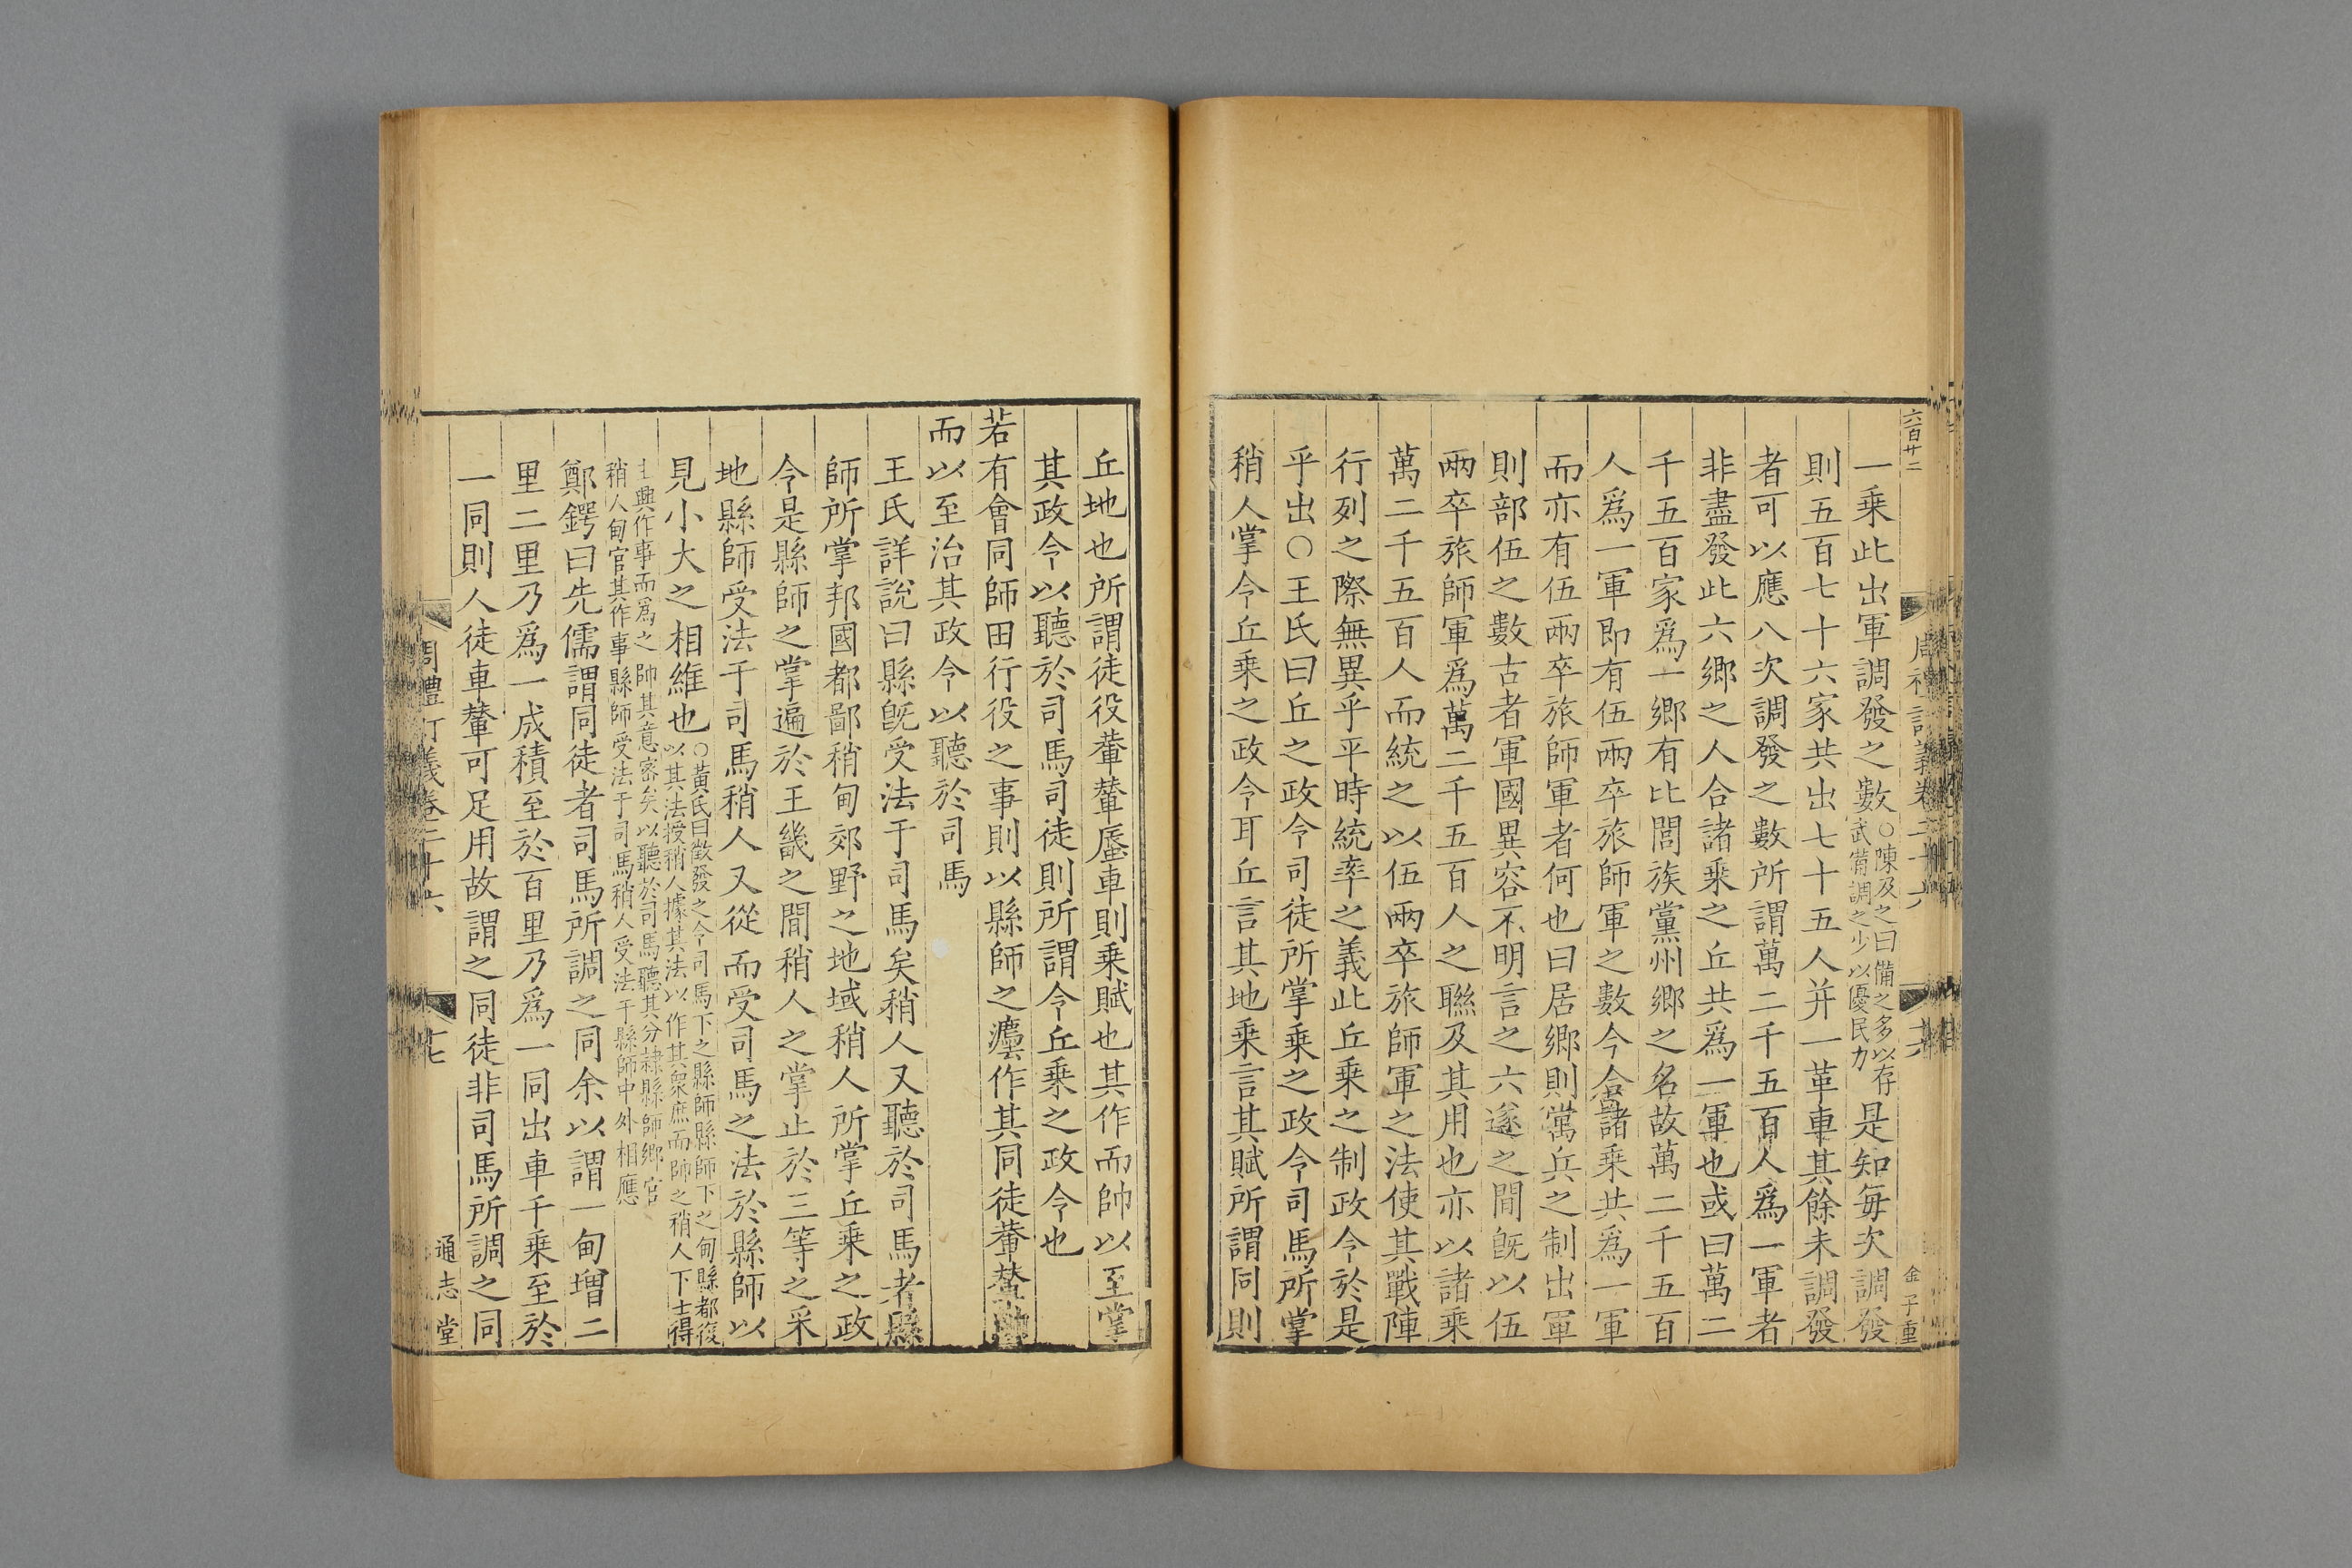 六百廿二
一乗此出軍調發之數○陳及之曰備之多以存武備調之少以優民力是知每次調發
則五百七十六家共出七十五人并一革車其餘未調發
者可以應八次調發之數所謂萬二千五百人爲一軍者
非盡發此六鄉之人合諸乗之丘共爲一軍也或曰萬二
千五百家爲一鄉有比閭族黨州鄉之名故萬二千五百
人爲一軍即有伍兩卒旅師軍之數今合諸乗共爲一軍
而亦有伍兩卒旅師軍者何也曰居鄉則寓兵之制出軍
則部伍之數古者軍國異容不明言之六遂之閒旣以伍
兩卒旅師軍爲萬二千五百人之聯及其用也亦以諸乗
萬二千五百人而統之以伍兩卒旅師軍之法使其戰陣
行列之際無異乎平時統率之義此丘乗之制政令於是
乎出○王氏曰丘之政令司徒所掌乗之政令司馬所掌
稍人掌令丘乗之政令耳丘言其地乗言其賦所謂同則
金子重
丘地也所謂徒役輂輦蜃車則乗賦也其作而帥以至掌
其政令以聽於司馬司徒則所謂令丘乗之政令也
若有會同師田行役之事則以縣師之灋作其同徒輂輦帥
而以至治其政令以聽於司馬
王氏詳說曰縣旣受法于司馬矣稍人又聽於司馬者縣
師所掌邦國都鄙稍甸郊野之地域稍人所掌丘乗之政
令是縣師之掌遍於王畿之閒稍人之掌止於三等之采
地縣師受法于司馬稍人又從而受司馬之法於縣師以
見小大之相維也○黃氏曰徵發之令司馬下之縣師縣師下之甸縣都復以其法授稍人據其法以作其衆庶而帥之稍人下士得
士興作事而爲之帥其意密矣以聽於司馬聽其分隷縣師鄉官稍人甸官其作事縣師受法于司馬稍人受法于縣師中外相應
鄭鍔曰先儒謂同徒者司馬所調之同余以謂一甸增二
里二里乃爲一成積至於百里乃爲一同出車千乗至於
一同則人徒車輦可足用故謂之同徒非司馬所調之同
周禮訂義卷二十六
十七
通志堂